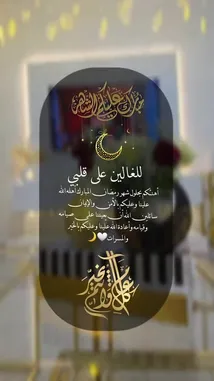 مبارك عليكم الشهر
للغالين على قلبي
أهنئكم بحلول شهر رمضان المبارك أهله الله
علينا وعليكم بالأمن والإيمان
سائلين الله أن يعيننا على صيامه
وقيامه وأعاده الله علينا وعليكم بالخير
والمسرات🤍🌙
كل عام وأنتم بخير